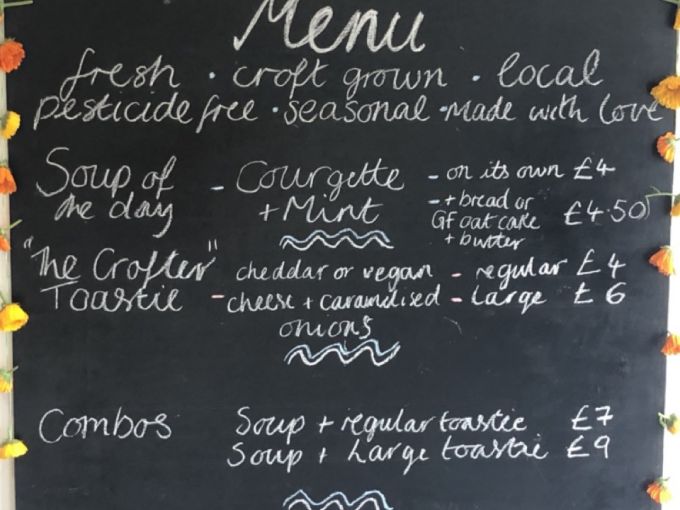 Menu
fresh · croft grown · local
pesticide free · seasonal · Made with love
Soup of the day - Courgette + Mint
- on its own £4
- + bread or GF oat cake + butter £4.50
"The Crofter" Toastie - cheddar or vegan cheese + caramelised onions
- regular £4
- Large £6
Combos
Soup + regular toastie £7
Soup + Large toastie £9